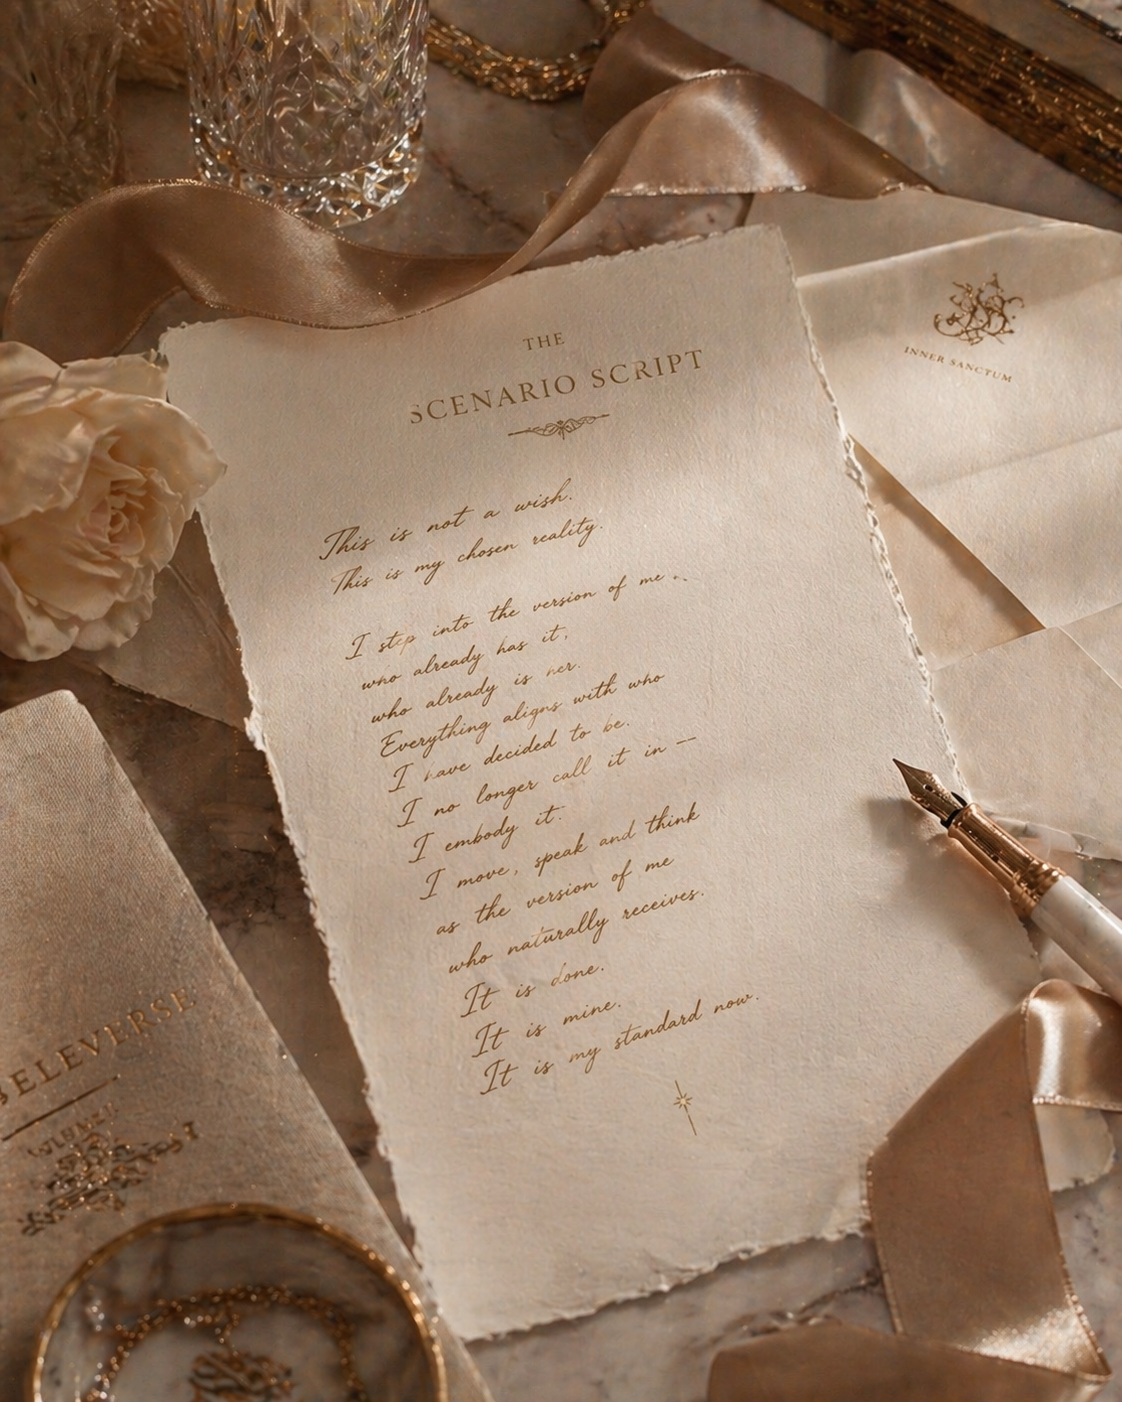 THE
SCENARIO SCRIPT
This is not a wish.
This is my chosen reality.
I step into the version of me..
who already has it,
who already is her.
Everything aligns with who
I have decided to be.
I no longer call it in —
I embody it.
I move, speak and think
as the version of me
who naturally receives.
It is done.
It is mine.
It is my standard now.
INNER SANCTUM
BELEVERSE